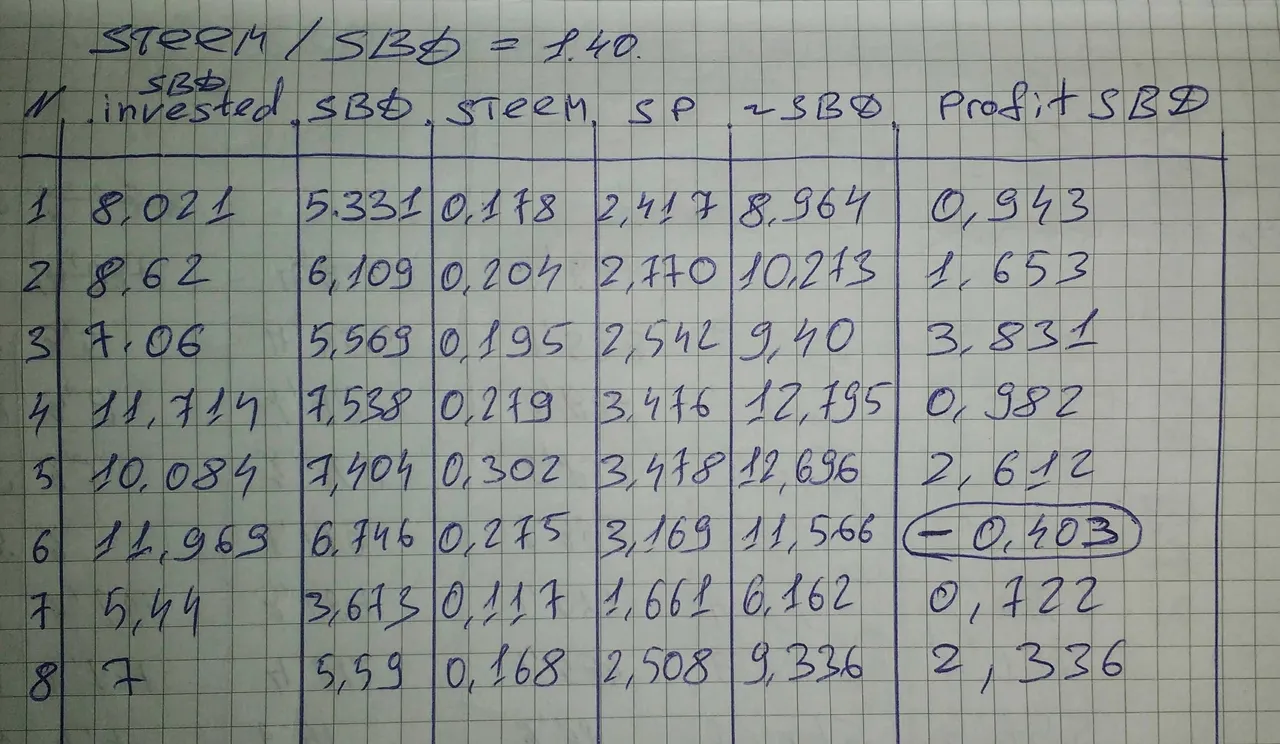 STEEM / SBD = 1.40.
N. SBD invested. SBD. STEEM. SP. ~SBD. Profit SBD
1 8,021 5.331 0,178 2,417 8,964 0,943
2 8,62 6,109 0,204 2,770 10,273 1,653
3 7.06 5,569 0,195 2,542 9,40 3,831
4 11,714 7,538 0,279 3,476 12,795 0,982
5 10,084 7,404 0,302 3,478 12,696 2,612
6 11,969 6.746 0,275 3,169 11,566 - 0,403
7 5,44 3,673 0,117 1,661 6,162 0,722
8 7 5,59 0,168 2,508 9,336 2,336